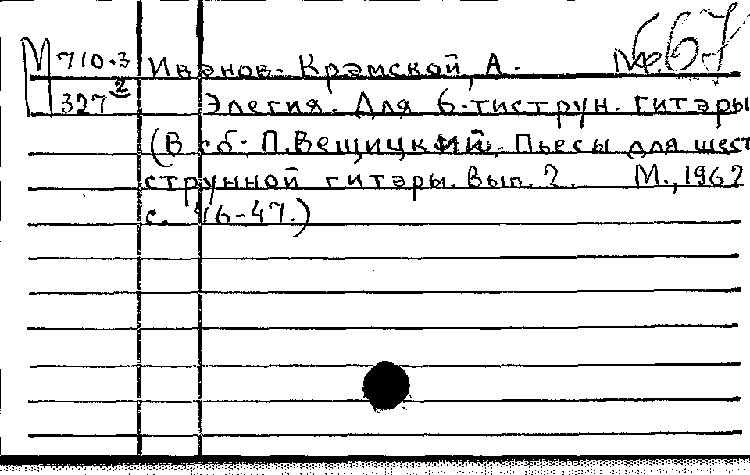 М 710-3 Иванов-Крамской, А. № 67
327 2 Элегия. Для 6-тиструн. гитары
(В сб: П. Вещицкий. Пьесы для шест
струнной гитары. Вып. 2. М., 1962
с. 46-47.)